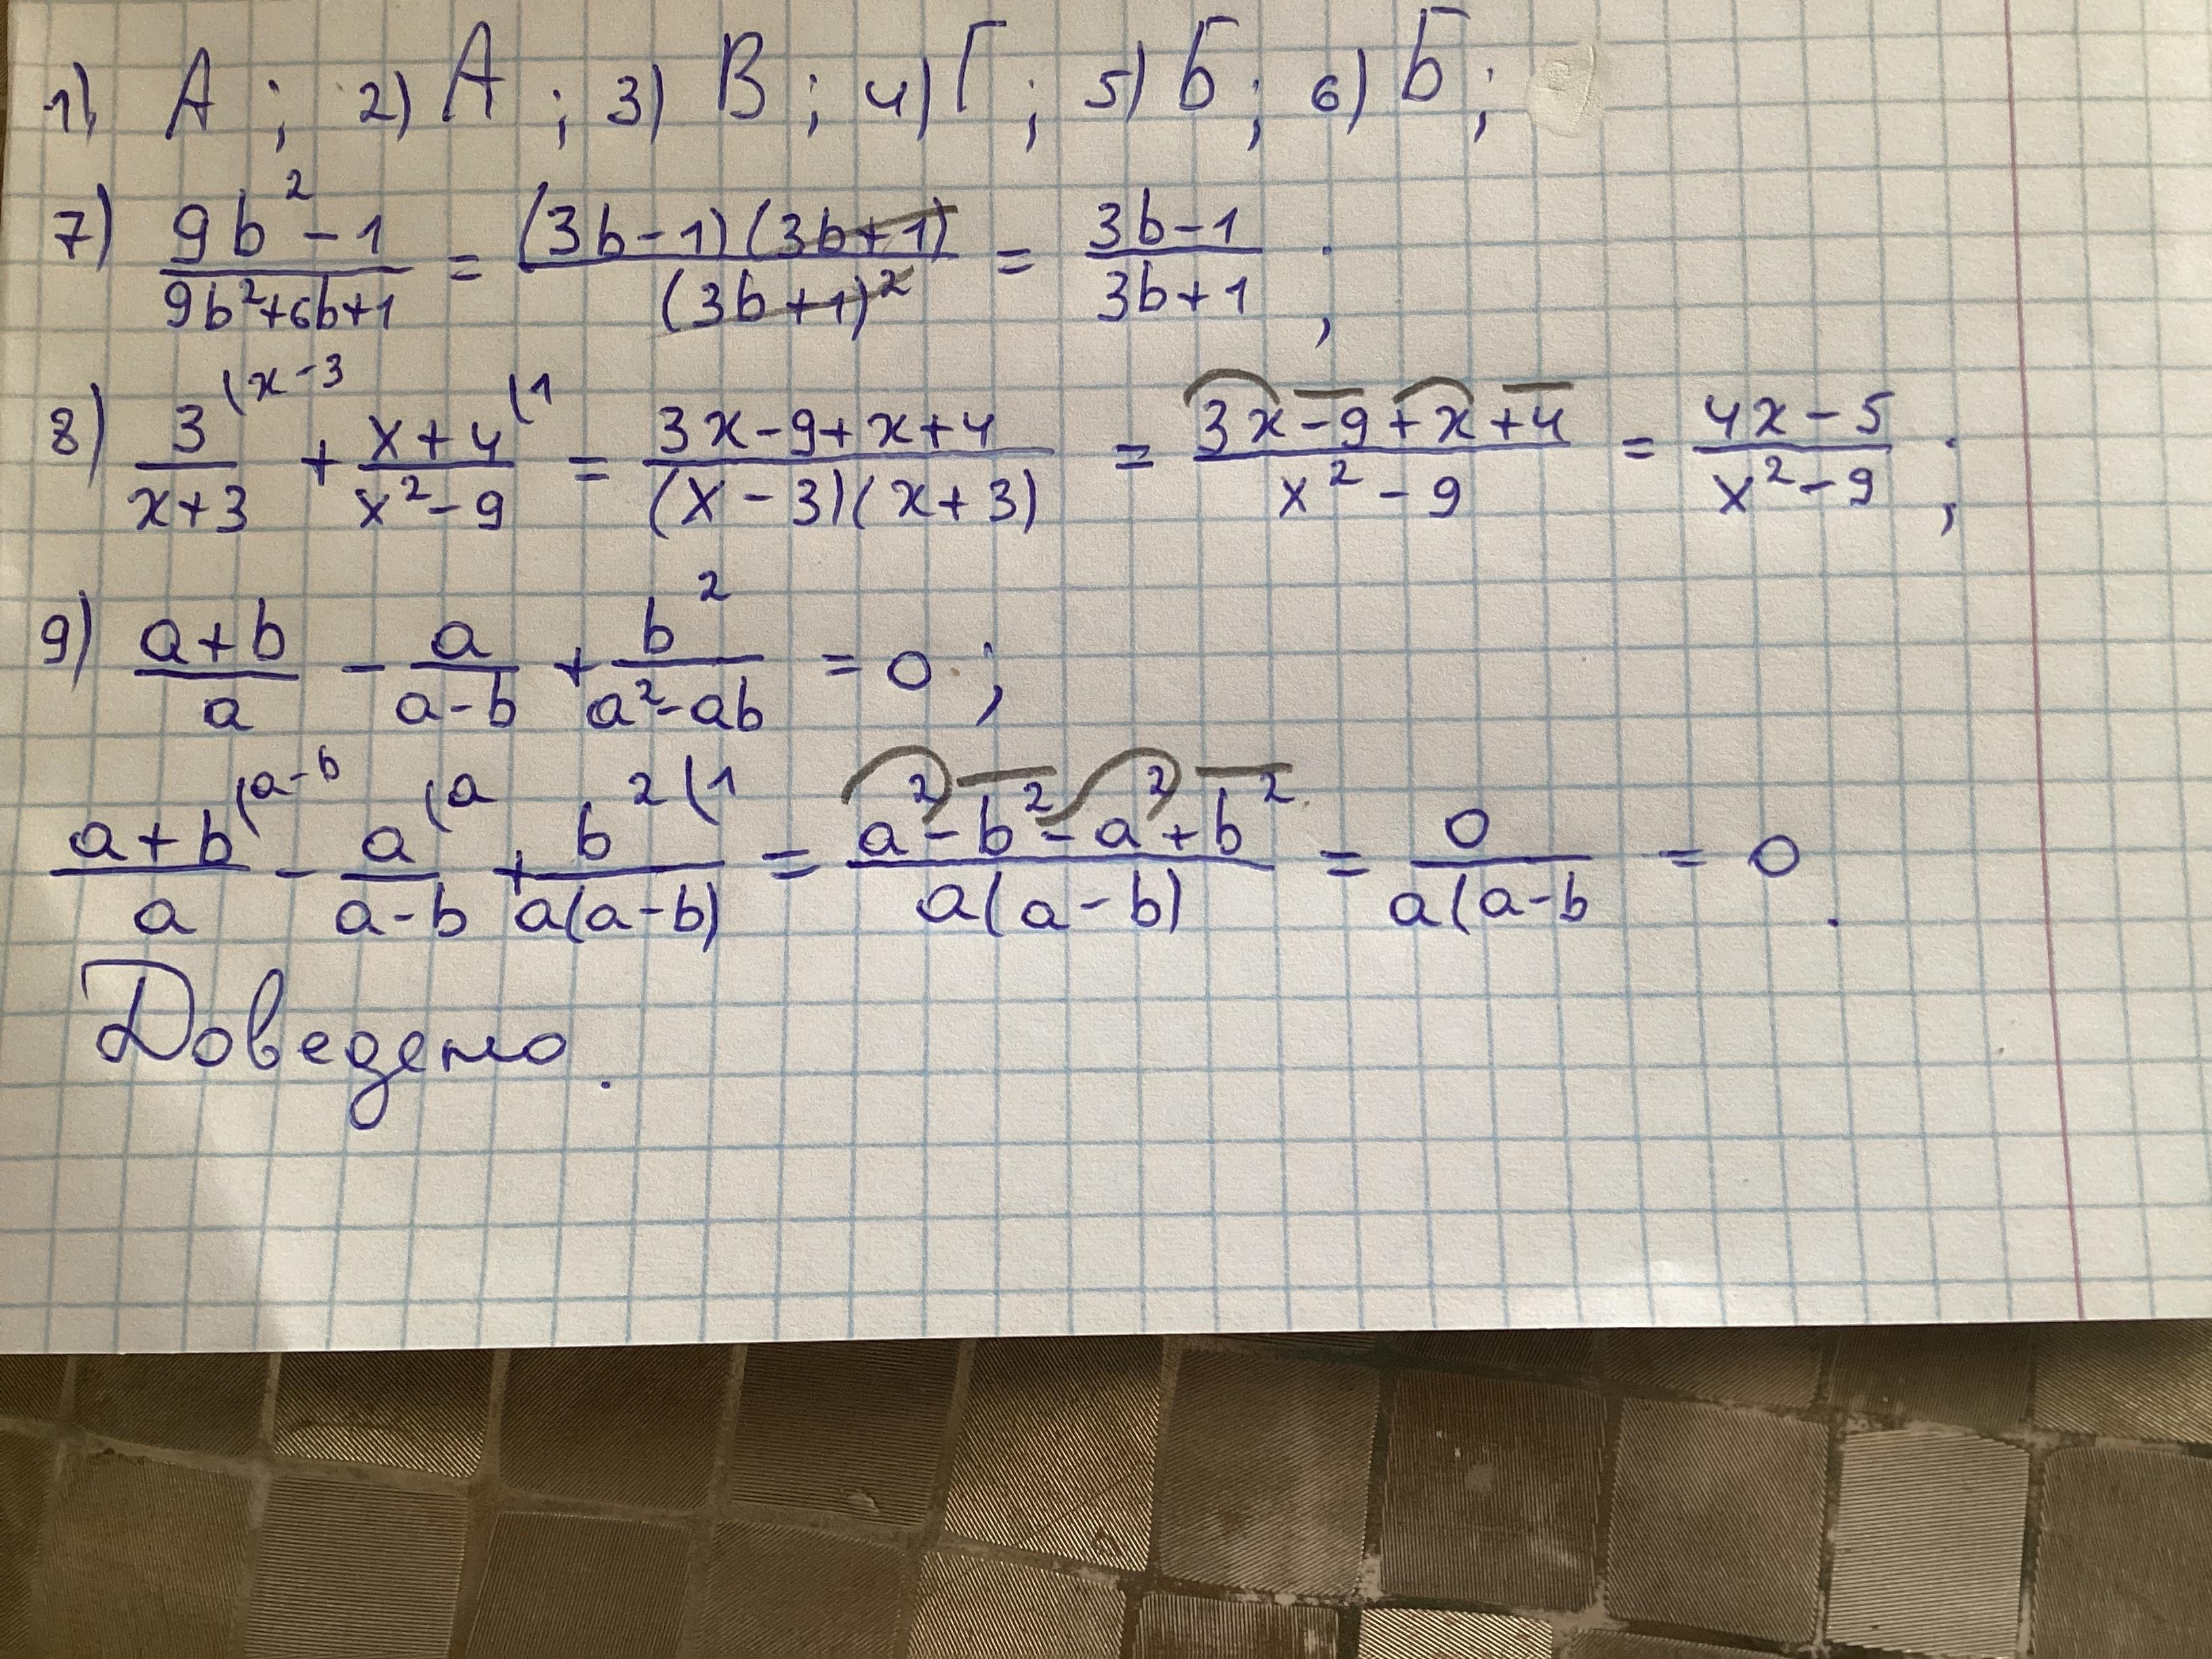 1) А ; 2) А ; 3) В ; 4) Г ; 5) Б ; 6) Б ;
7) (9b²-1)/(9b²+6b+1) = ((3b-1)(3b+1))/((3b+1)²) = (3b-1)/(3b+1) ;
8) 3/(x+3) (x-3 + (x+4)/(x²-9) (1 = (3x-9+x+4)/((x-3)(x+3)) = (3x-9+x+4)/(x²-9) = (4x-5)/(x²-9) ;
9) (a+b)/a - a/(a-b) + b²/(a²-ab) = 0 ;
(a+b)/a (a-b - a/(a-b) (a + b²/(a(a-b)) (1 = (a²-b²-a²+b²)/(a(a-b)) = 0/(a(a-b) = 0 .
Доведено.